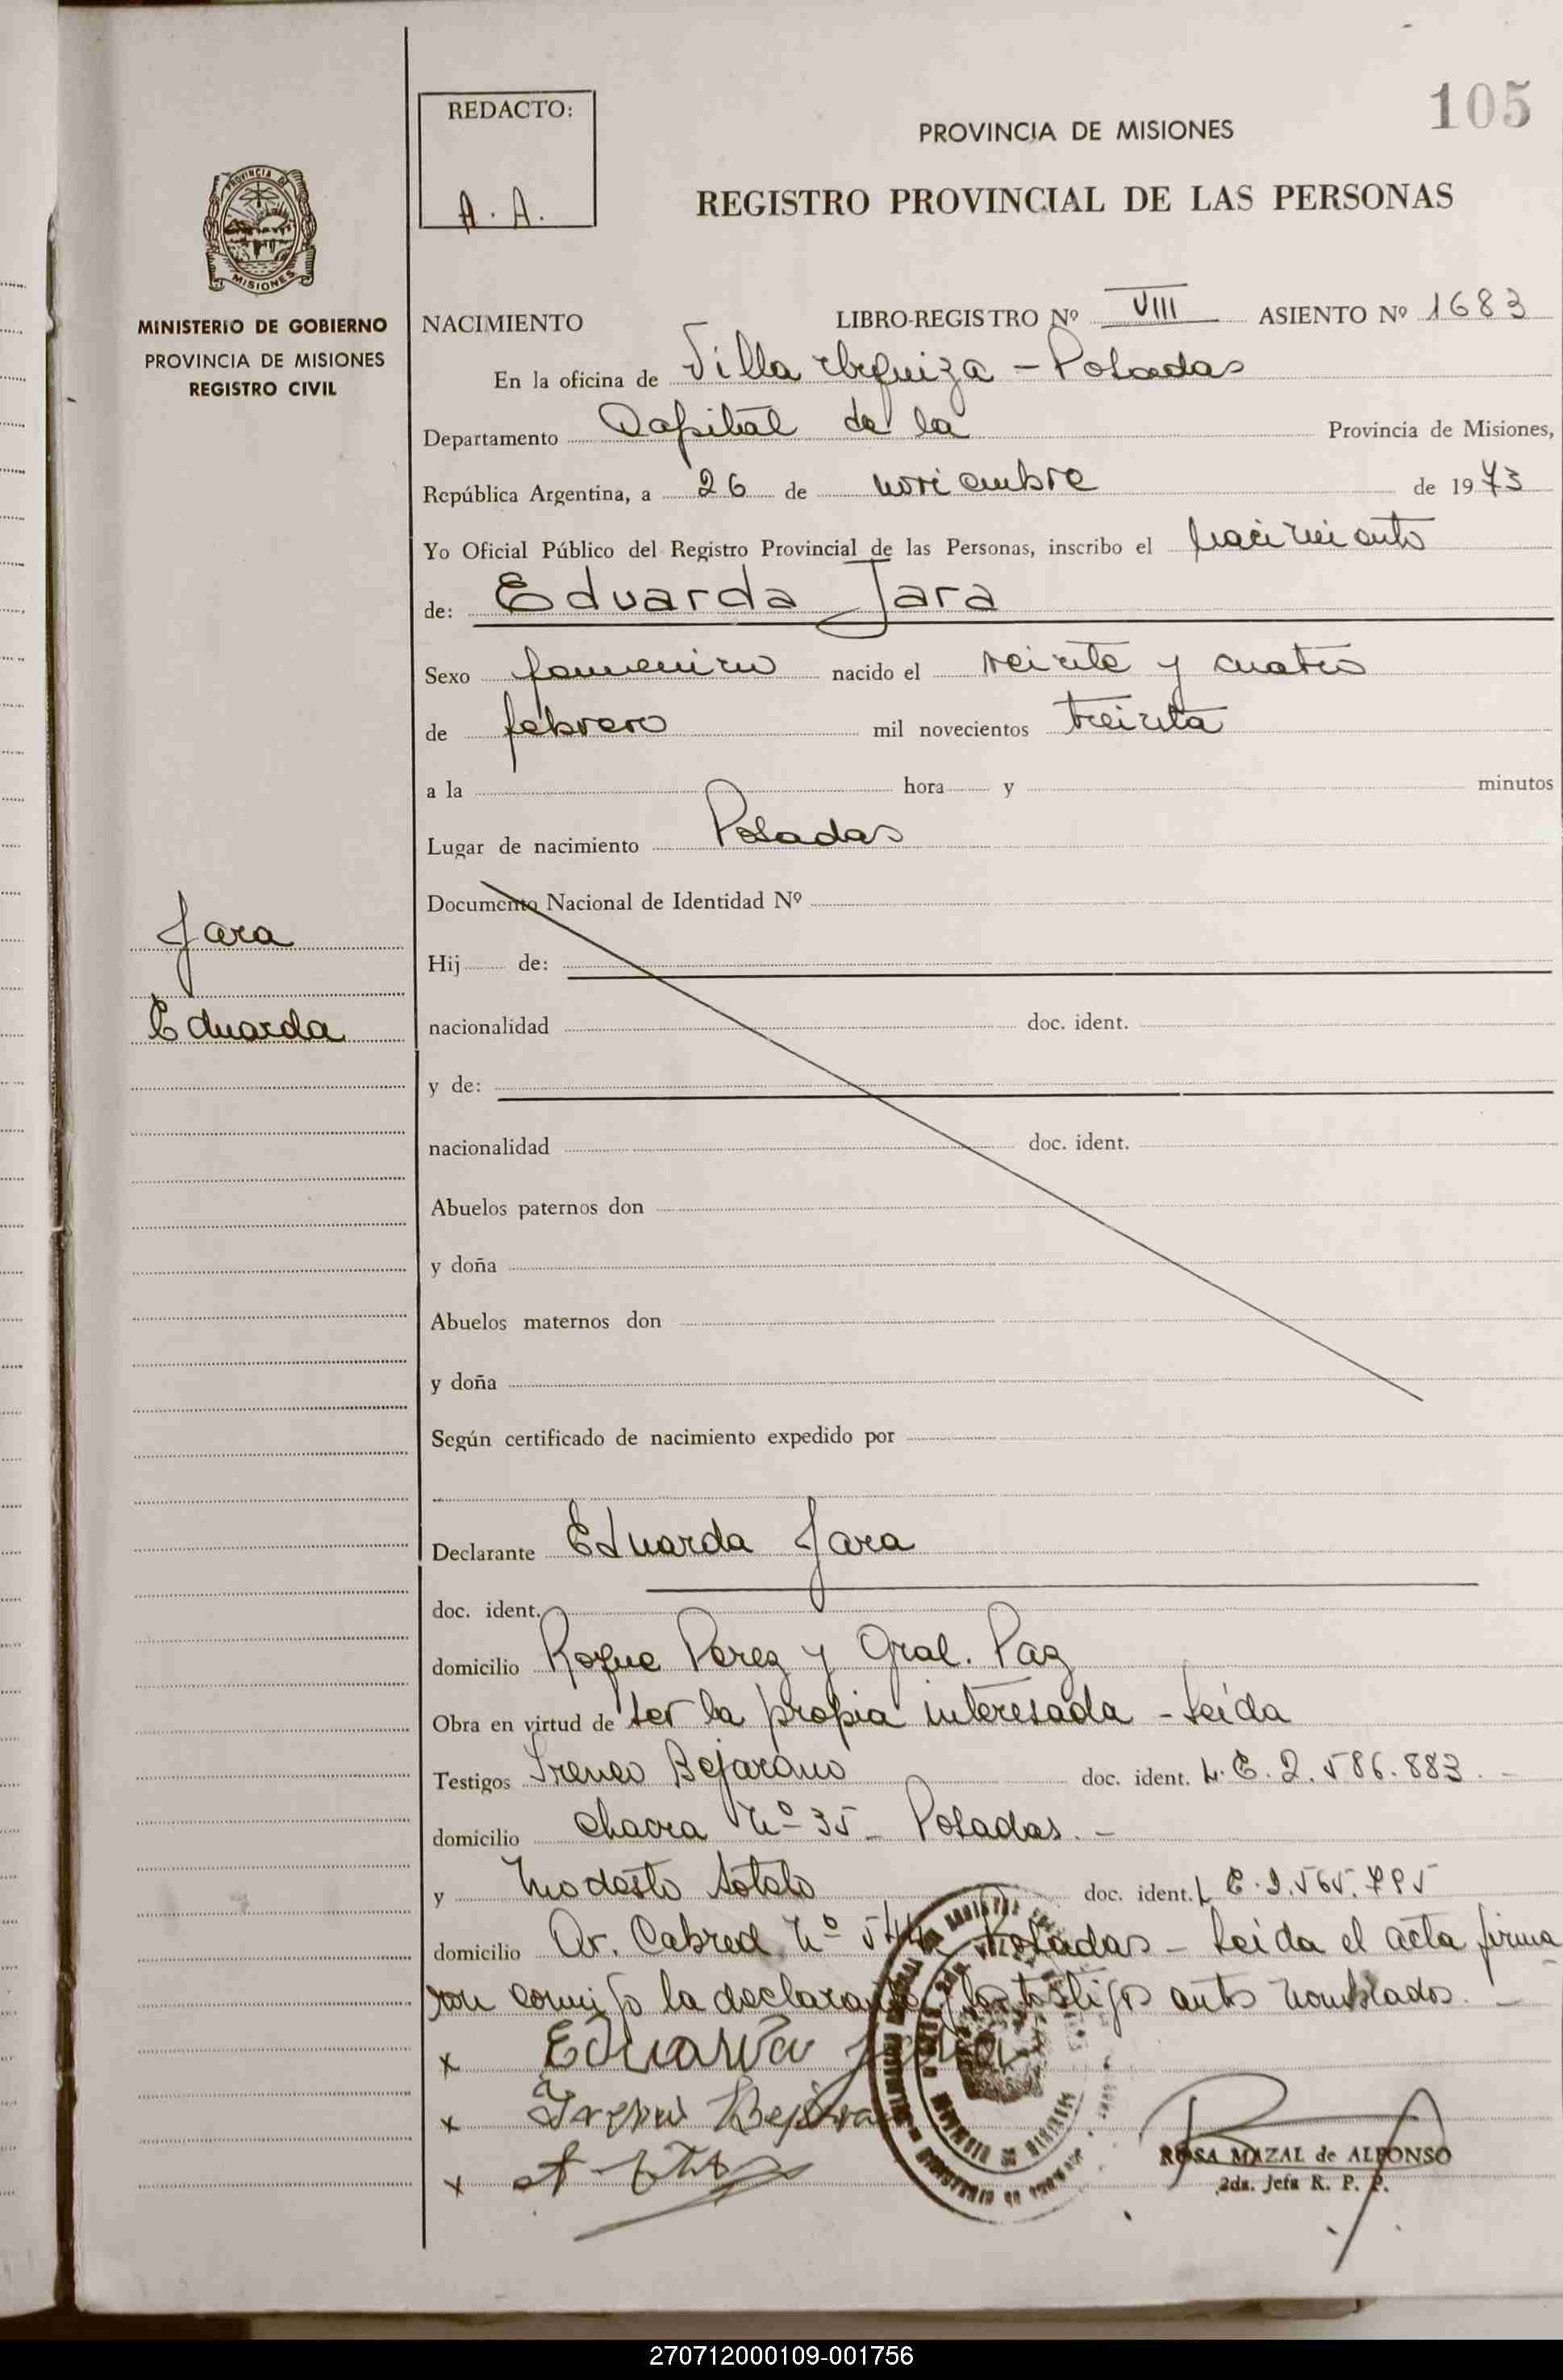 105
REDACTO:
A. A.
PROVINCIA DE MISIONES
REGISTRO PROVINCIAL DE LAS PERSONAS
PROVINCIA DE
MISIONES
MINISTERIO DE GOBIERNO
PROVINCIA DE MISIONES
REGISTRO CIVIL
NACIMIENTO LIBRO-REGISTRO Nº VIII ASIENTO Nº 1683
En la oficina de Villa Urquiza - Posadas
Departamento Capital de la Provincia de Misiones,
República Argentina, a 26 de noviembre de 1973
Yo Oficial Público del Registro Provincial de las Personas, inscribo el nacimiento
de: Eduarda Jara
Sexo femenino nacido el veinte y cuatro
de febrero mil novecientos treinta
a la hora y minutos
Lugar de nacimiento Posadas
Documento Nacional de Identidad Nº
Jara
Hij de:
Eduarda
nacionalidad doc. ident.
y de:
nacionalidad doc. ident.
Abuelos paternos don
y doña
Abuelos maternos don
y doña
Según certificado de nacimiento expedido por
Declarante Eduarda Jara
doc. ident.
domicilio Roque Perez y Gral. Paz
Obra en virtud de ser la propia interesada - Leída
Testigos Ireneo Bejarano doc. ident. L. E. 2.586.883. -
domicilio chacra Nº 35 - Posadas. -
y Modesto Sotelo doc. ident. L E. 2.565.795
domicilio Av. Cabred Nº Posadas - Leida el acta firma
ron conmigo la declarante y los testigos antes nombrados. -
x Eduarda Jara
x Ireneo Bejarano
x
ROSA MAZAL de ALFONSO
2da. Jefa R. P. P.
270712000109-001756